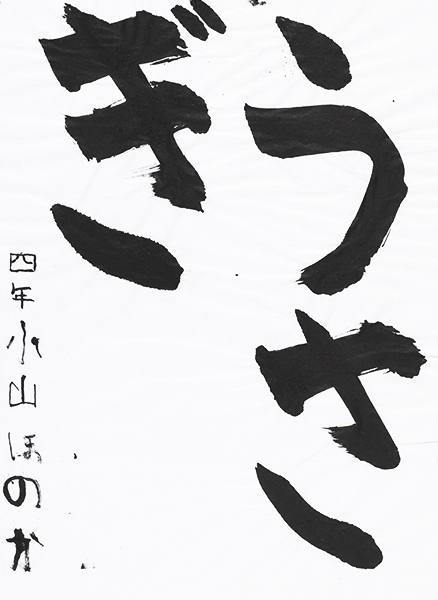 うさ
ぎ
四年小山ほのか